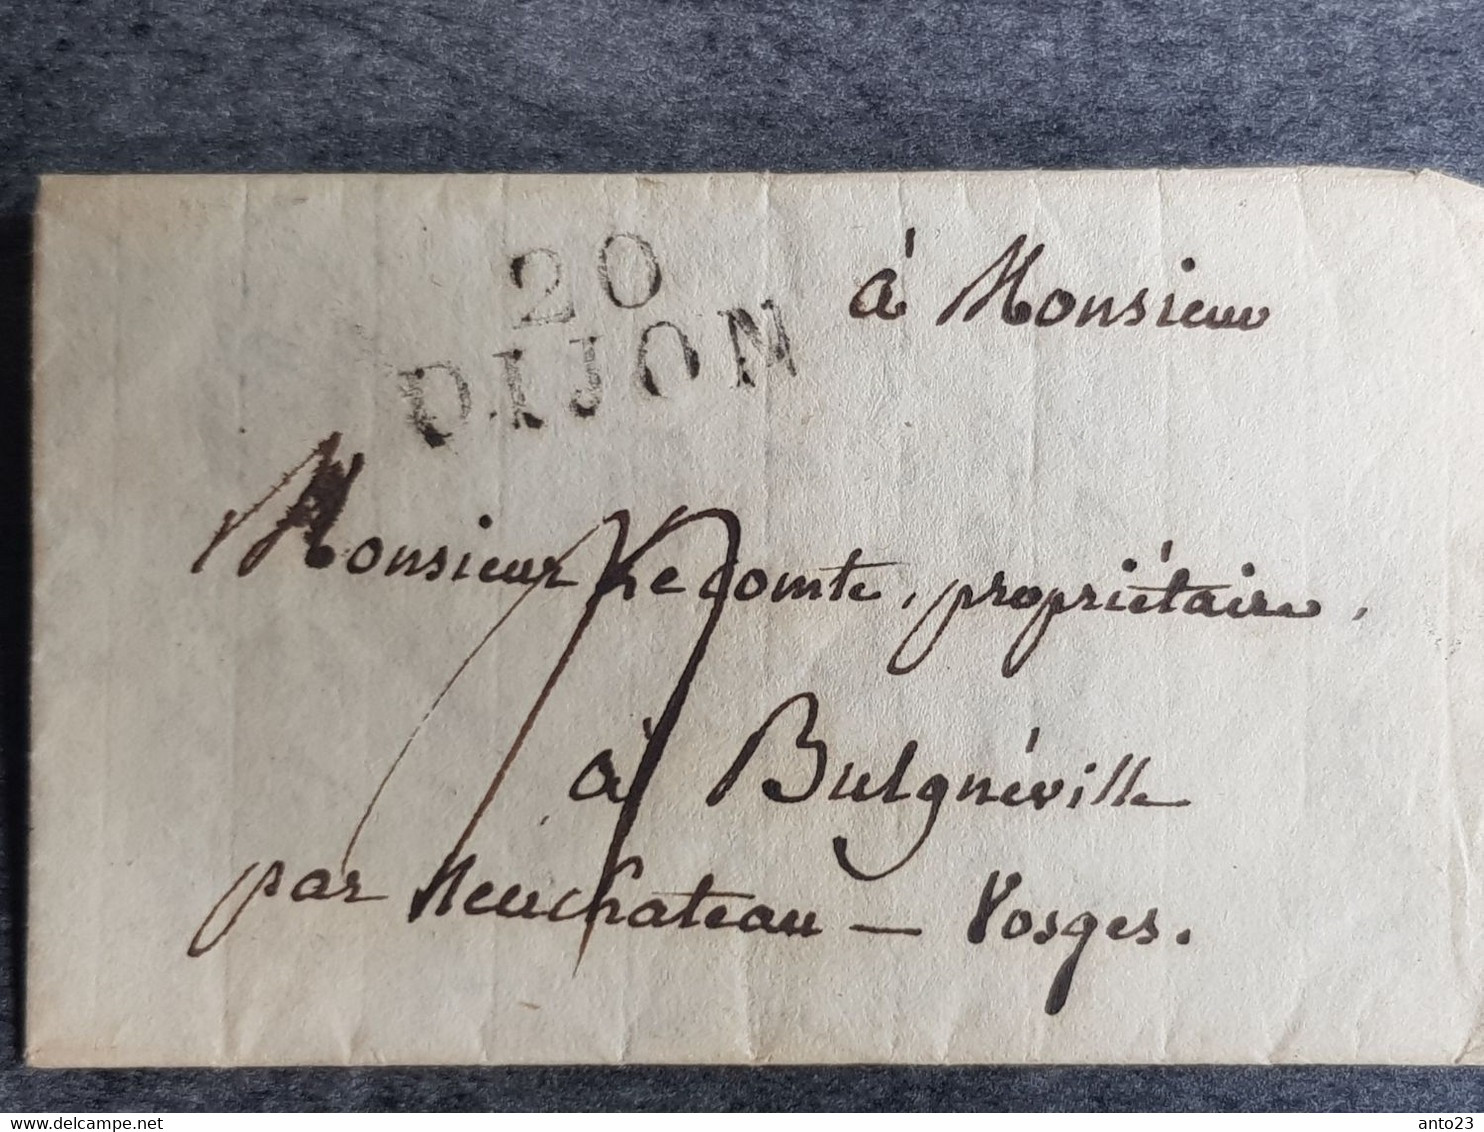 20
DIJON
à Monsieur
Monsieur Lecomte, propriétaire,
à Bulgnéville
par Neuchateau – Vosges.
anto23